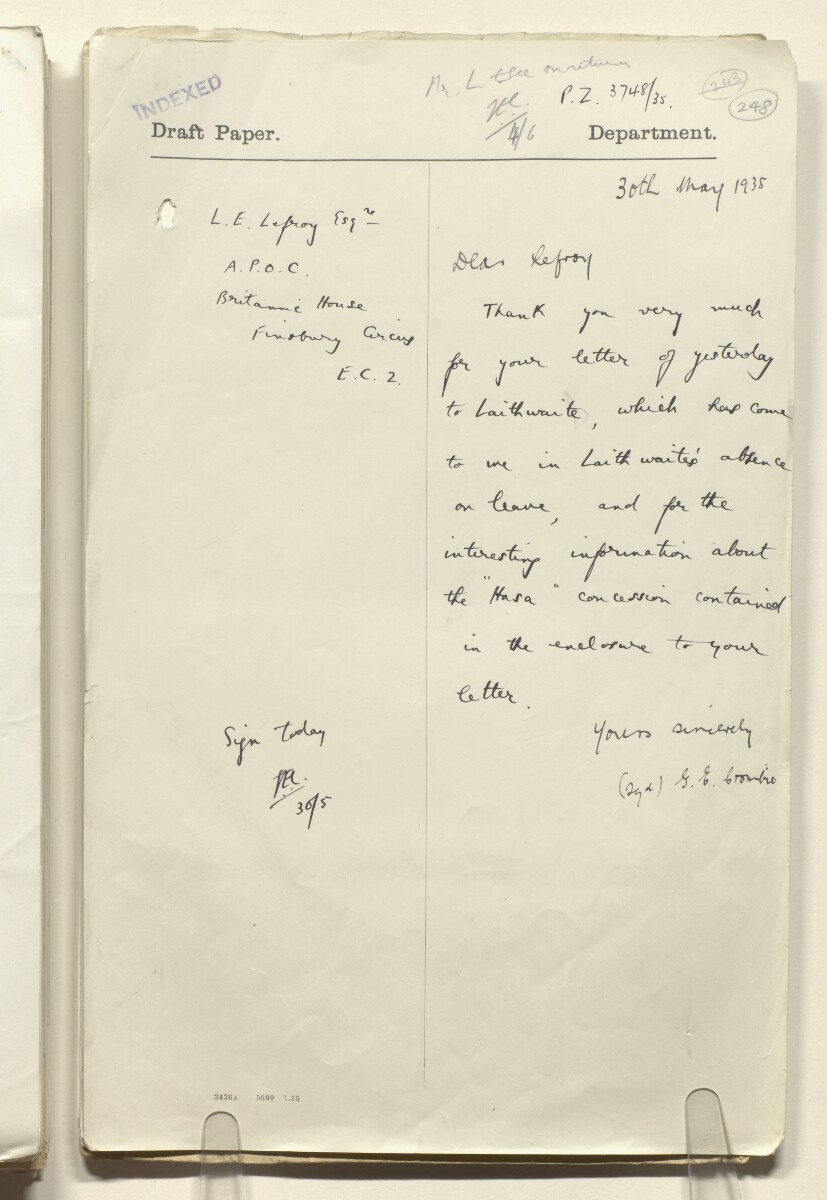 INDEXED
Mr. L to see on return
P.Z. 3748/35.
4/6
243
248
Draft Paper.
Department.
30th May 1935
L. E. Lefroy Esqre
A.P.O.C.
Britannic House
Finsbury Circus
E.C. 2.
Dear Lefroy
Thank you very much
for your letter of yesterday
to Laithwaite, which has come
to me in Laithwaite's absence
on leave, and for the
interesting information about
the "Hasa" concession contained
in the enclosure to your
letter.
Yours sincerely
(sgd) G. E. Crombie
Sign today
30/5
3436A 5000 1.35